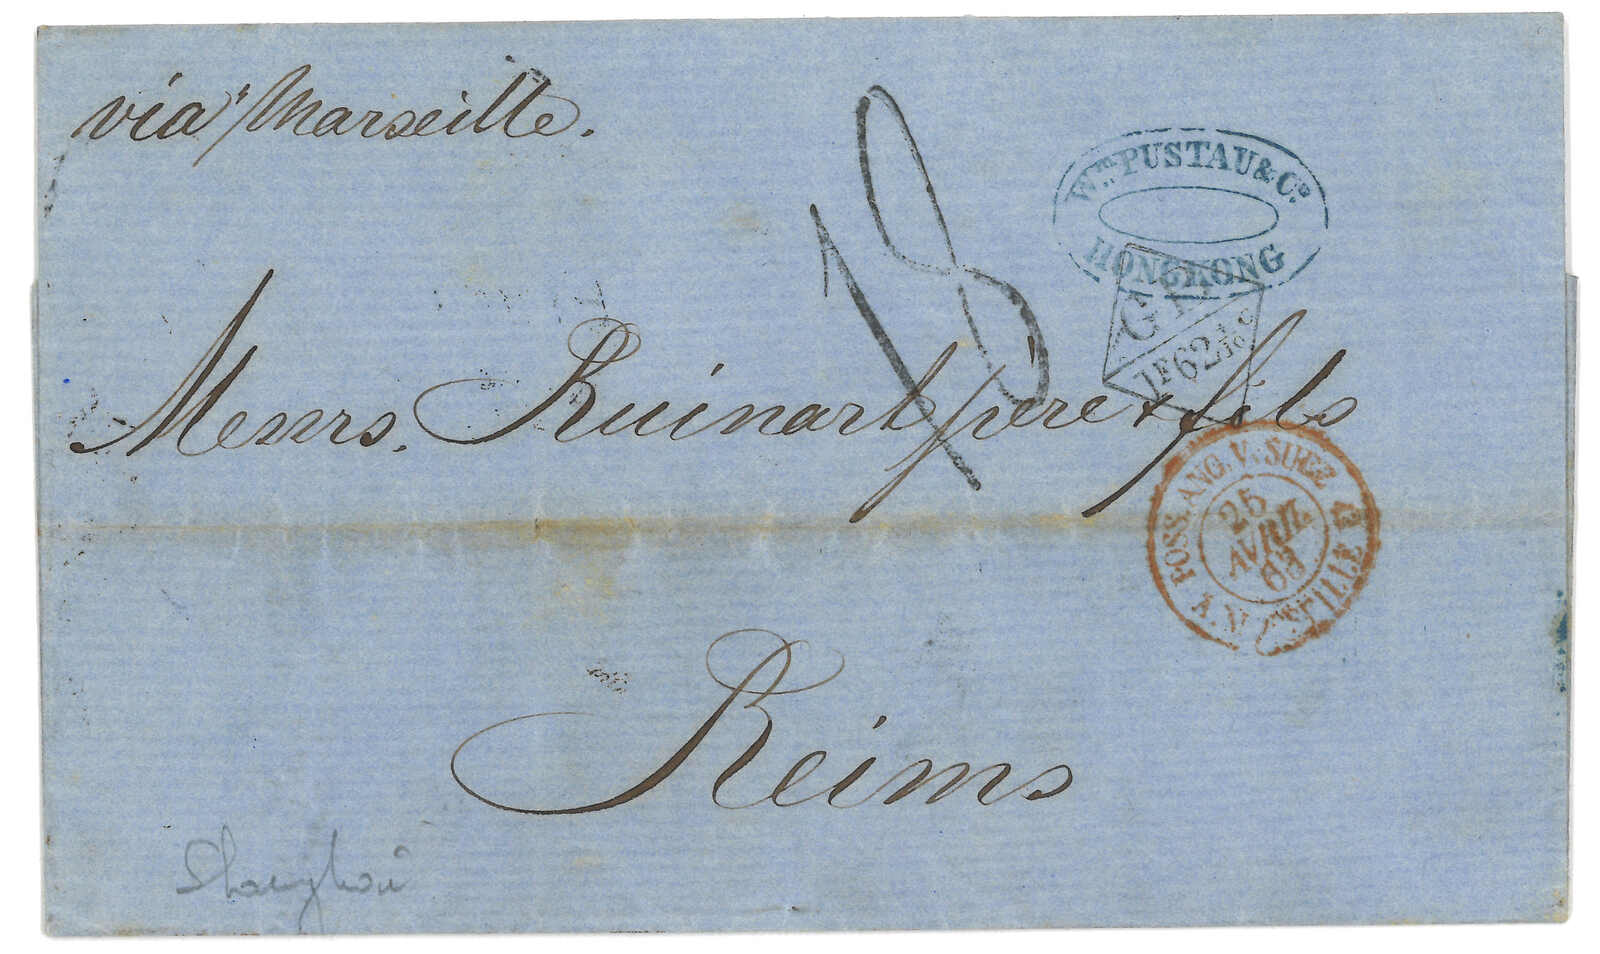 via Marseille.
18
Wm PUSTAU & Co.
HONGKONG
GB
1F62 4/10 C
Messrs. Ruinart père & fils
POSS. ANG. V. SUEZ
25
AVRIL
A. MARSEILLE
Reims
Shanghai